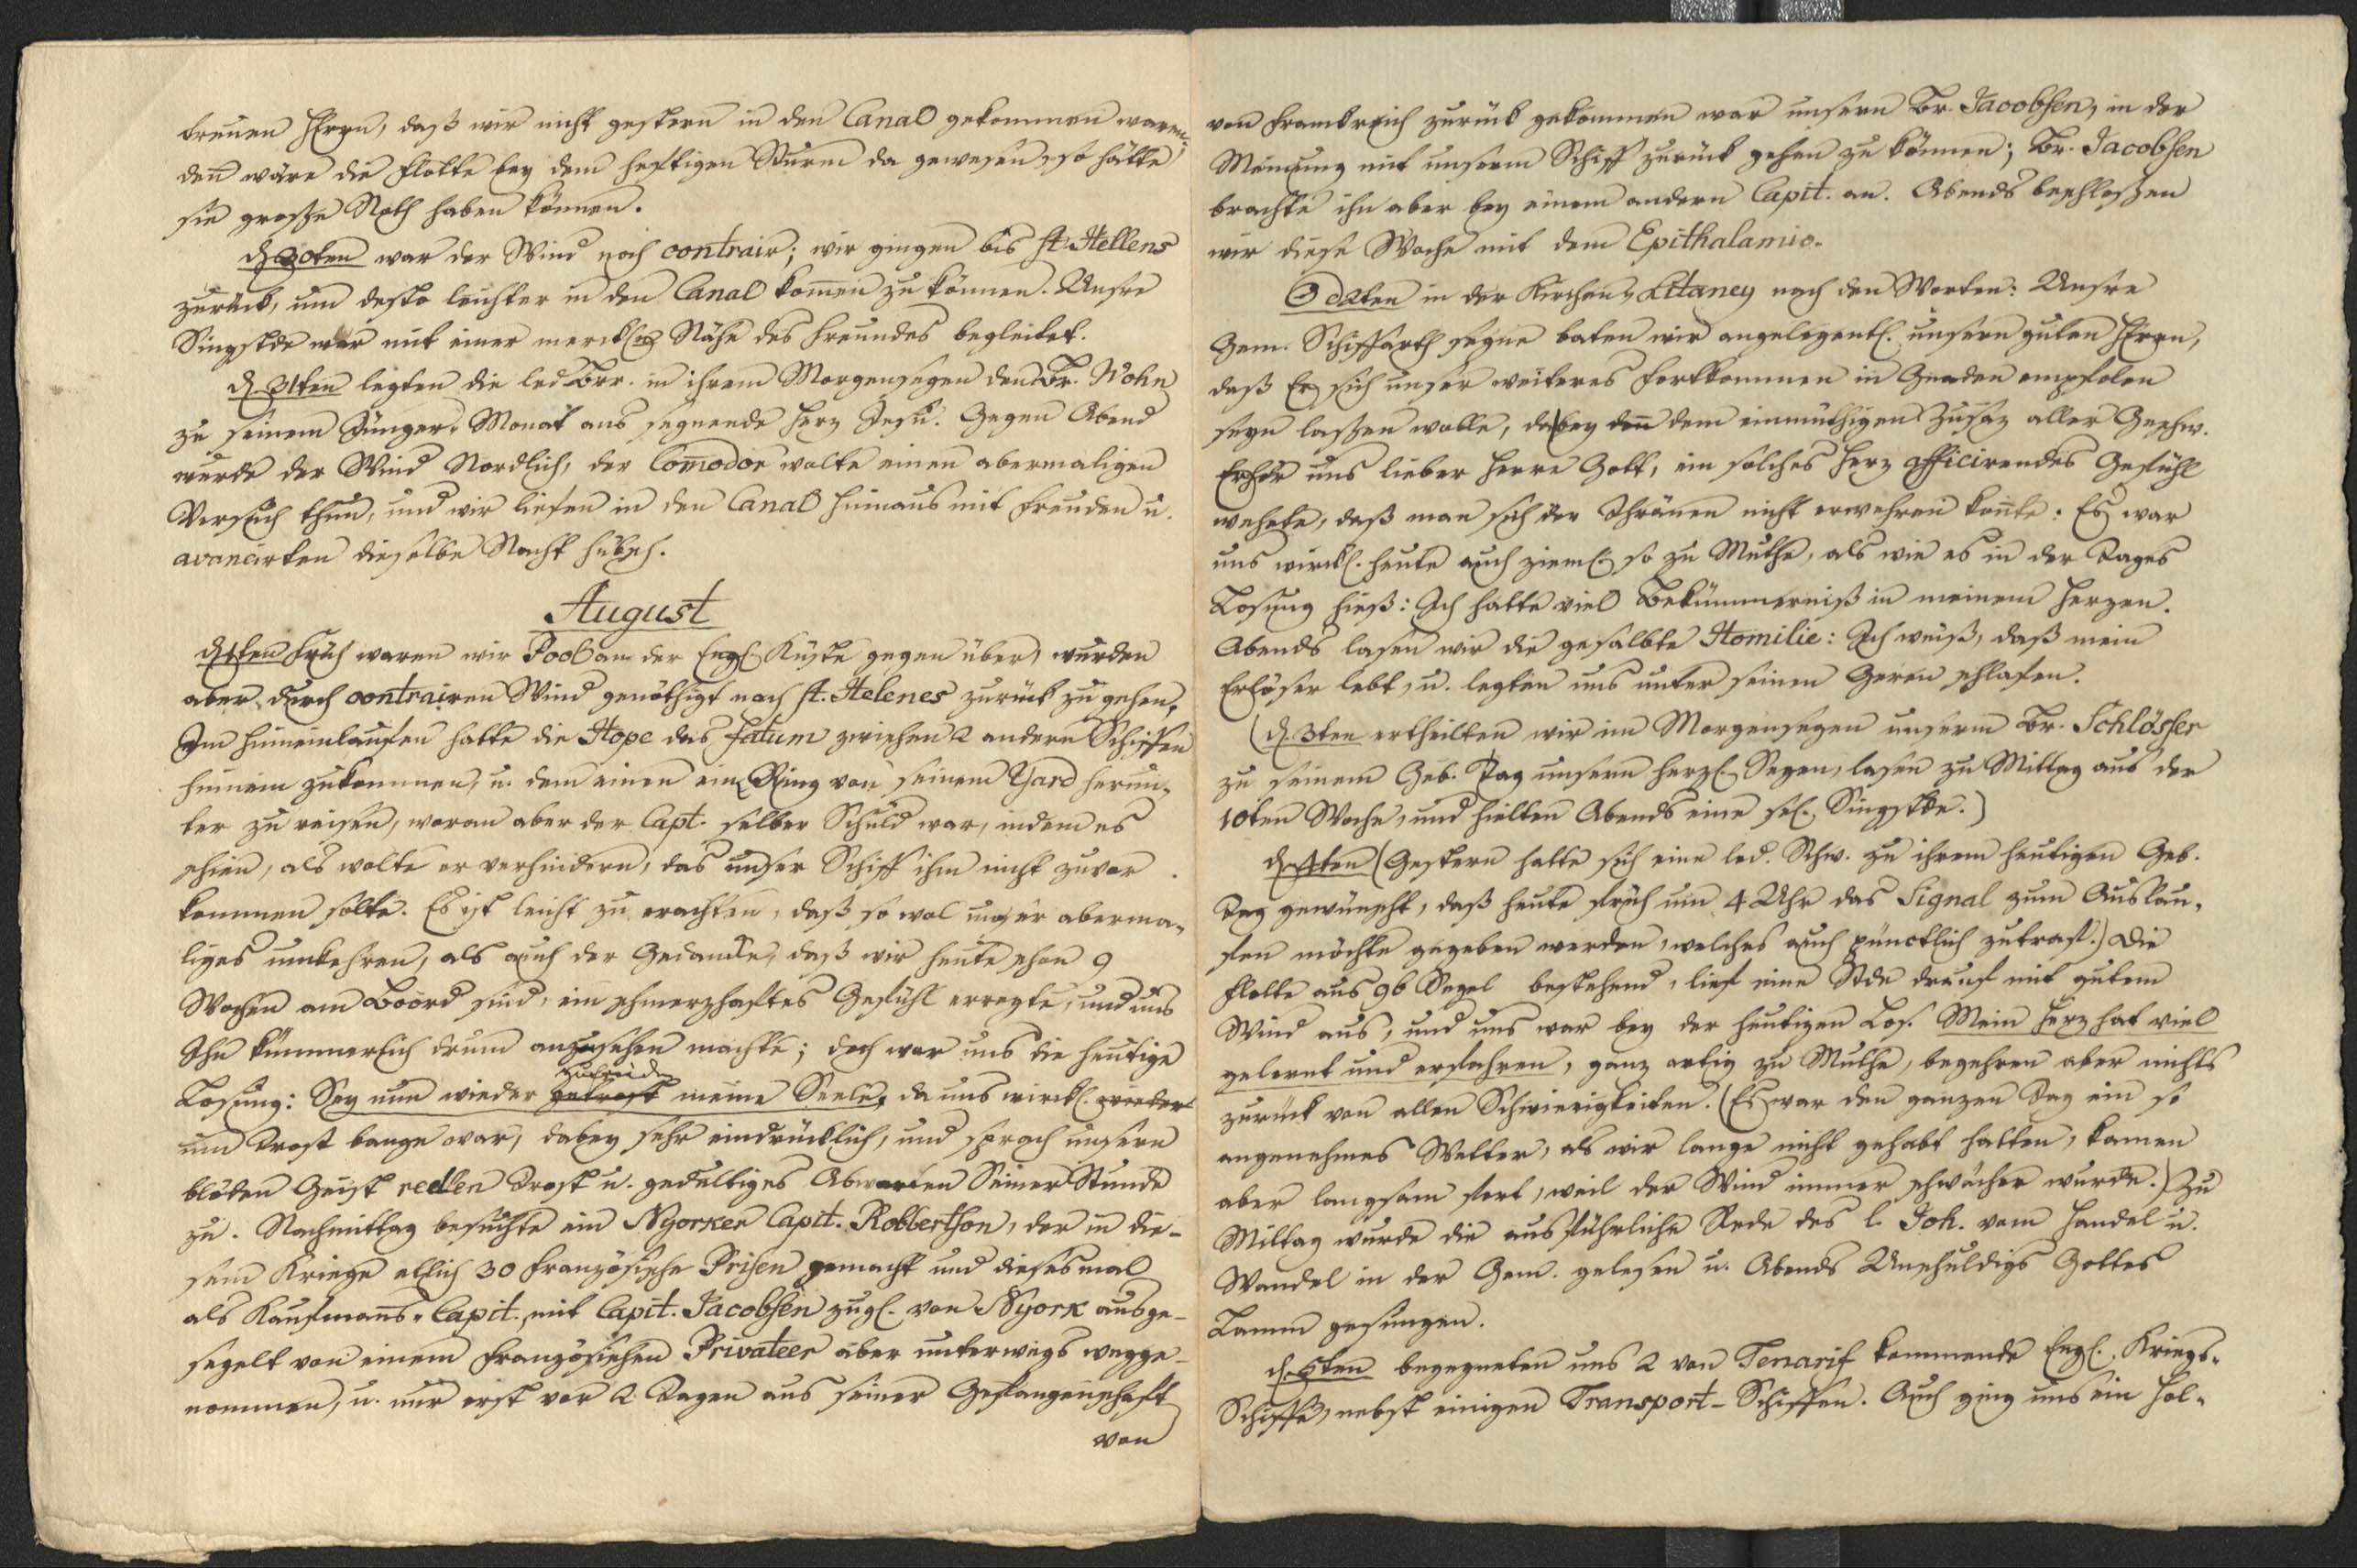 treuen HErrn, daß wir nicht gestern in den Canal gekommen waren,
den̄ wäre die Flotte bey dem heftigen Sturm da gewesen, so hätte
sie große Noth haben können.
d. 30ten war der Wind noch contrair; wir gingen bis St. Hellens
zurück, um desto leichter in den Canal kom̄en zu können. Unsre
Singstde war mit einer merckl. Nähe des Freundes begleitet.
d. 31ten legten die led. Brr. in ihrem Morgensegen den Br. Wohn
zu seinem Jünger-Monat ans segnende Herz Jesu. Gegen Abend
wurde der Wind Nordlich, der Com̄odor wolte einen abermaligen
Versuch thun, und wir liefen in den Canal hinaus mit Freuden u.
avancirten dieselbe Nacht hübsch.
August
d. 1ten früh waren wir Pool an der Engl. Küste gegen über, wurden
aber durch contrairen Wind genöthigt nach St. Helenes zurück zu gehen,
Im hineinlaufen hatte die Hope das fatum zwischen 2 andern Schiffen
hinein zukommen, u. dem einen ein Ring von seinem Yard herun-
ter zu reisen, woran aber der Capt. selber Schuld war, indem es
schien, als wolte er verhindern, das unser Schiff ihm nicht zuvor
kommen solte. Es ist leicht zu erachten, daß so wol unser aberma-
liges umkehren, als auch der Gedancke, daß wir heute schon 9
Wochen am Boord sind, ein schmerzhaftes Gefühl erregte, und uns
Ihn kümmerlich drum anzusehen machte; doch war uns die heutige
Losung: Sey nun wieder getrost zufrieden meine Seele, da uns wirckl. wieder
um Trost bange war, dabey sehr eindrücklich, und sprach unsern
blöden Geist rechten Trost u. gedultiges Abwarten Seiner Stunde
zu. Nachmittag besuchte ein NYorker Capit. Robbertson, der in die-
sem Kriege etlich 30 französische Prisen gemacht und diesesmal
als Kaufman̄s-Capit. mit Capit. Jacobsen zugl. von NYork ausge-
segelt von einem Französischen Privateer aber unterwegs wegge-
nommen, u. nur erst vor 2 Tagen aus seiner Gefangenschaft
von
von Franckreich zurück gekommen war unsern Br. Jacobsen, in der
Meinung mit unserm Schiff zurück gehen zu können; Br. Jacobsen
brachte ihn aber bey einem andern Capit. an. Abends beschloßen
wir diese Woche mit dem Epithalamio.
☉ d 2ten in der Kirchen-Litaney nach den Worten: Unsre
Gem. Schiffarth segne baten wir angelegentl. unsern guten HErrn,
daß Er sich unser weiteres Fortkommen in Gnaden empfolen
seyn laßen wolle, dabey den̄ dem einmüthigen Zusaz aller Geschw.
Erhör uns lieber Herre Gott, ein solches Herz afficirendes Gefühl
wehete, daß man sich der Thränen nicht erwehren kon̄te: Es war
uns wirckl. heute auch zieml. so zu Muthe, als wie es in der Tages
Losung hieß: Ich hatte viel Bekümmerniß in meinem Herzen.
Abends lasen wir die gesalbte Homilie: Ich weiß, daß mein
Erlöser lebt, u. legten uns unter seinen Geren schlafen.
(d. 3ten ertheilten wir im Morgensegen unserm Br. Schlösser
zu seinem Geb. Tag unsern herzl. Segen, lasen zu Mittag aus der
10ten Woche, und hielten Abends eine sel. Singstde.)
d. 4ten (Gestern hatte sich eine led. Schw. zu ihrem heutigen Geb.
Tag gewünscht, daß heute früh um 4 Uhr das Signal zum Auslau-
fen möchte gegeben werden, welches auch pünctlich zutraf.) Die
Flotte aus 96 Segel bestehend, lief eine Stde drauf mit gutem
Wind aus, und uns war bey der heutigen Los. Mein Herz hat viel
gelernt und erfahren, ganz artig zu Muthe, begehren aber nichts
zurück von allen Schwierigkeiten. (Es war den ganzen Tag ein so
angenehmes Wetter, als wir lange nicht gehabt hatten, kamen
aber langsam fort, weil der Wind immer schwächer wurde.) Zu
Mittag wurde die ausführliche Rede des l. Joh. vom Handel u.
Wandel in der Gem. gelesen u. Abends Unschuldigs Gottes
Lamm gesungen.
d. 5ten begegneten uns 2 von Tenarif kommende Engl. Kriegs-
Schiffe, nebst einigen Transport-Schiffen. Auch ging uns ein Hol-